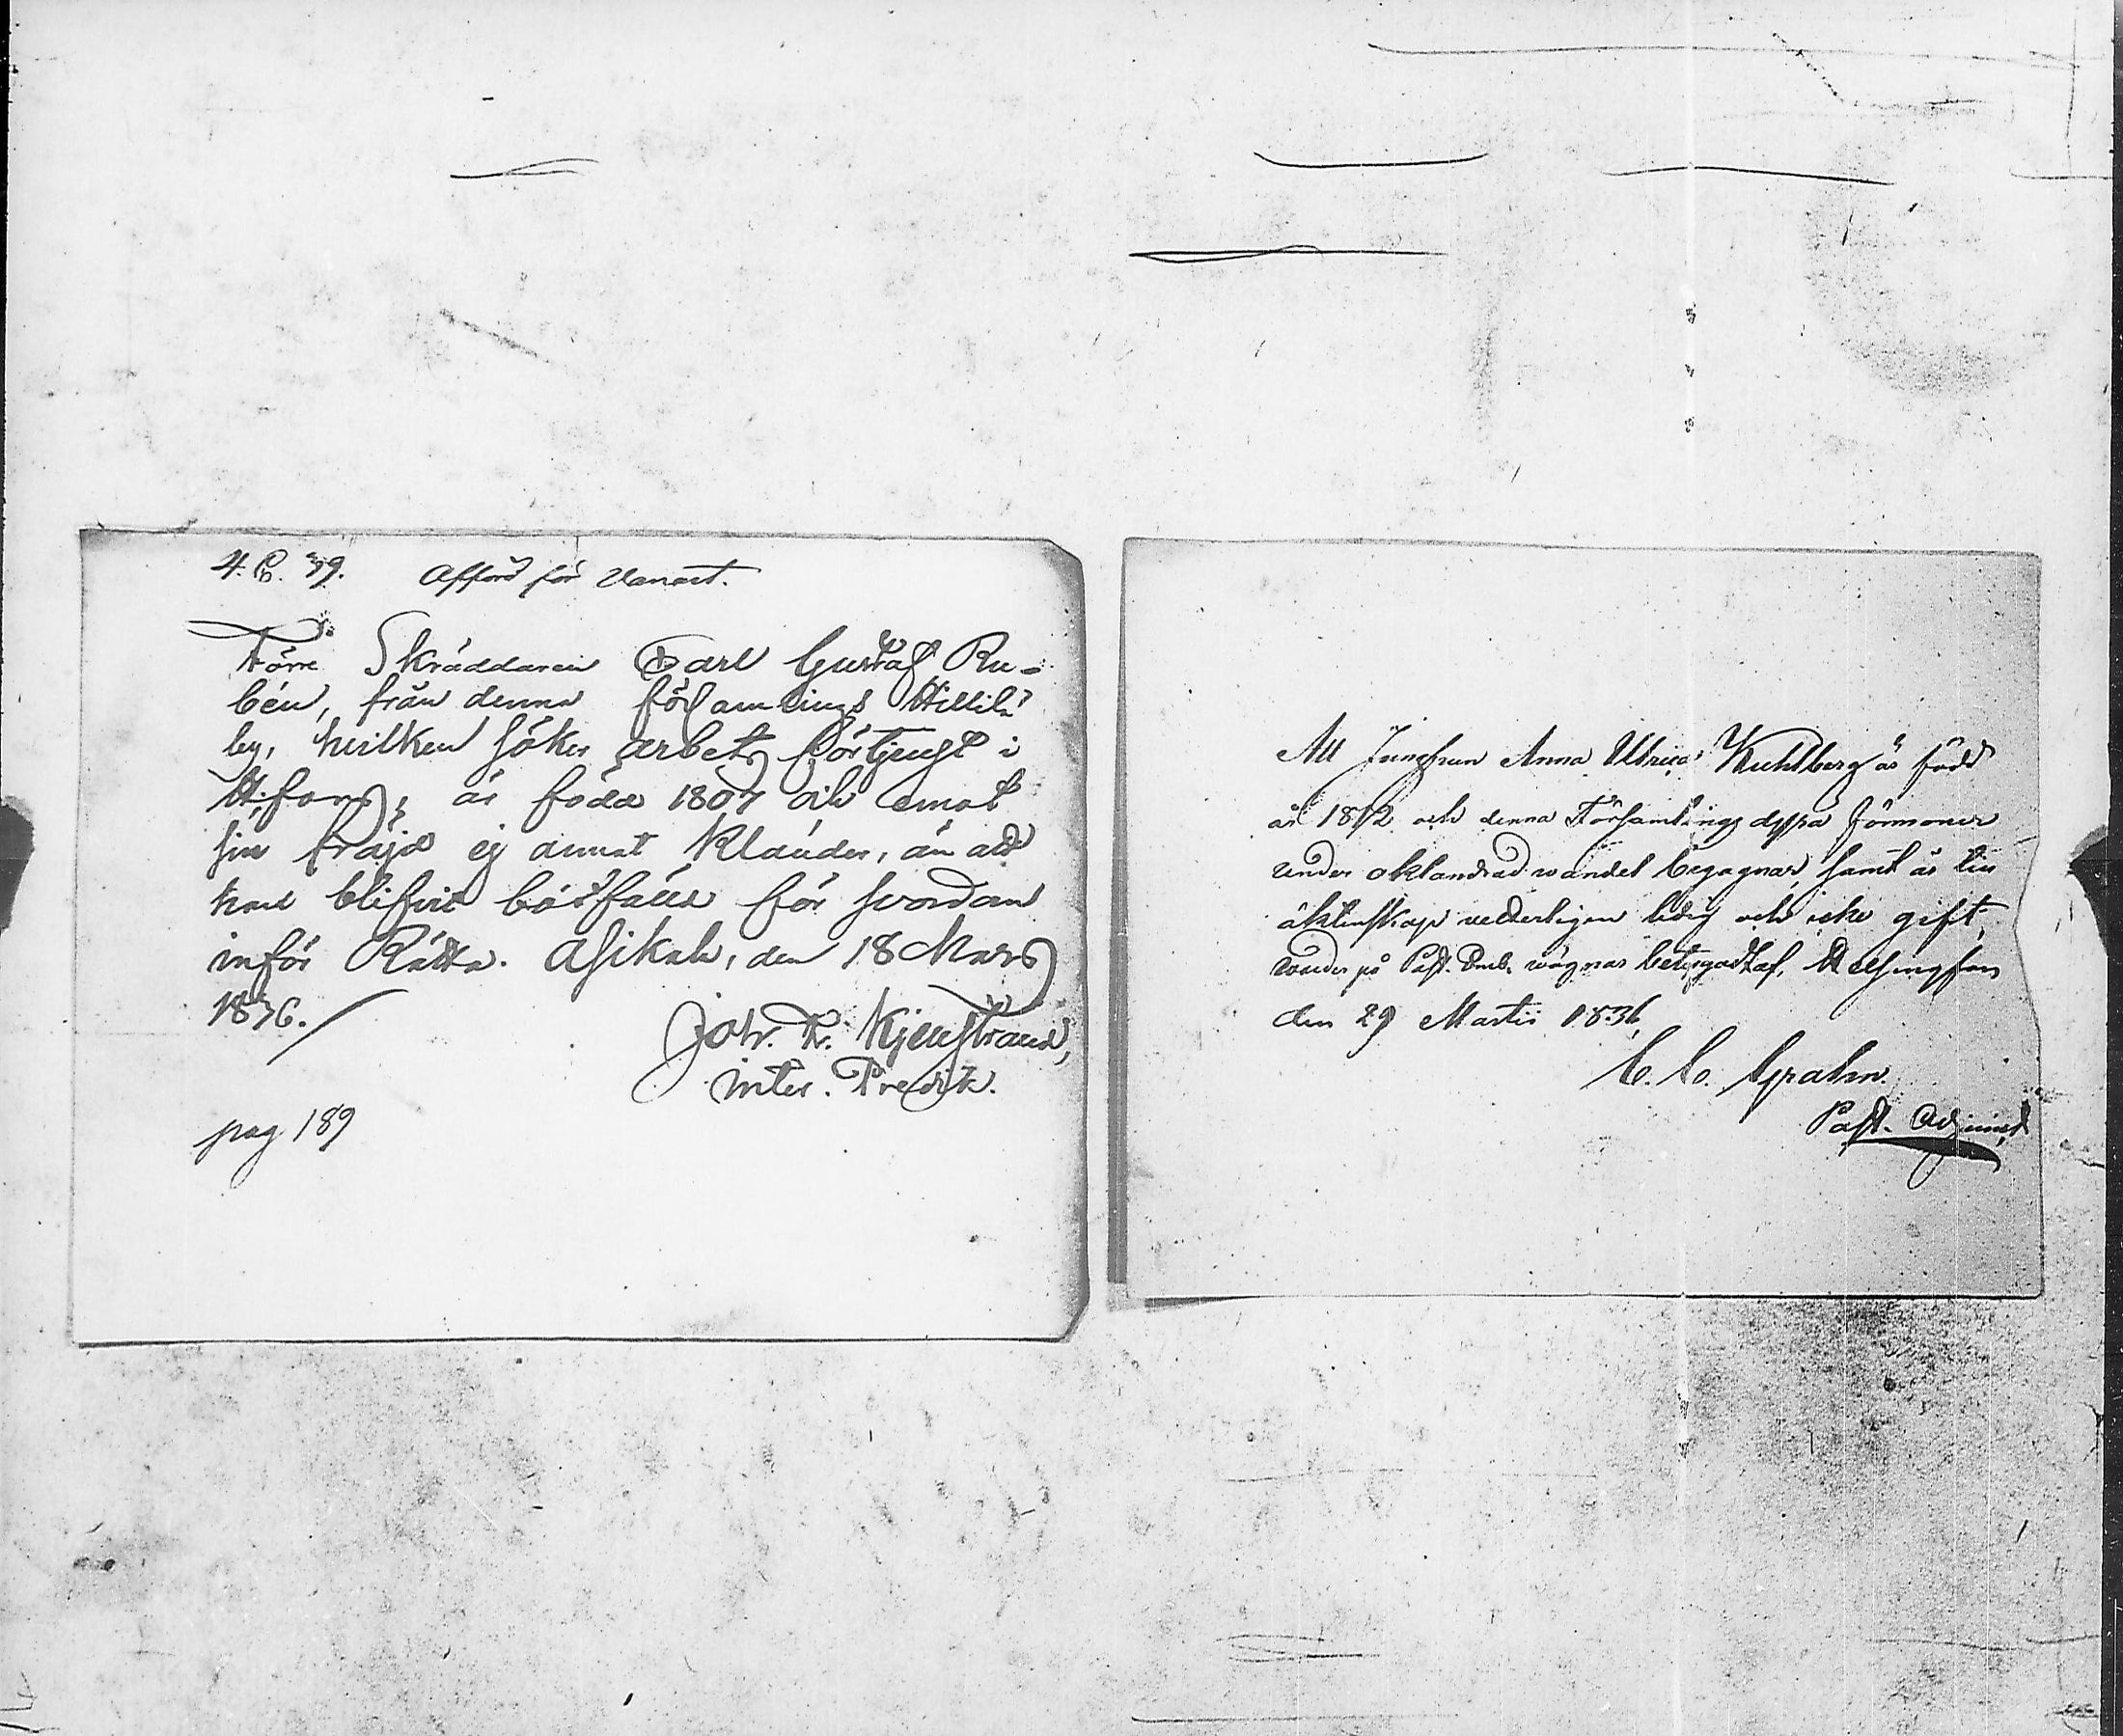 4. C. 39. Afförd för Vanart.
Förre Skräddaren Carl Gustaf Ru-
bén, från denna församlings Hillilä
by, hvilken söker arbets förtjenst i
H:fors, är född 1807 och emot
sin fräjd ej annat klander, än att
han blifvit bötfälld för svordom
inför Rätta. Asikala, den 18 Mars
1836.
Joh. F. Kjenstrand,
inter. Predik.
pag 189
Att Jungfrun Anna Ulrica Kuhlberg är född
år 1812 och denna Församlings förmoner
under oklandrad wandel begagnar, samt är till
äktenskap wederligen ledig och icke gift,
warder på Past. Emb. wägnar betygadt af, Helsingfors
den 29 Martii 1836,
C. C. Grahn.
Past. Adjunct